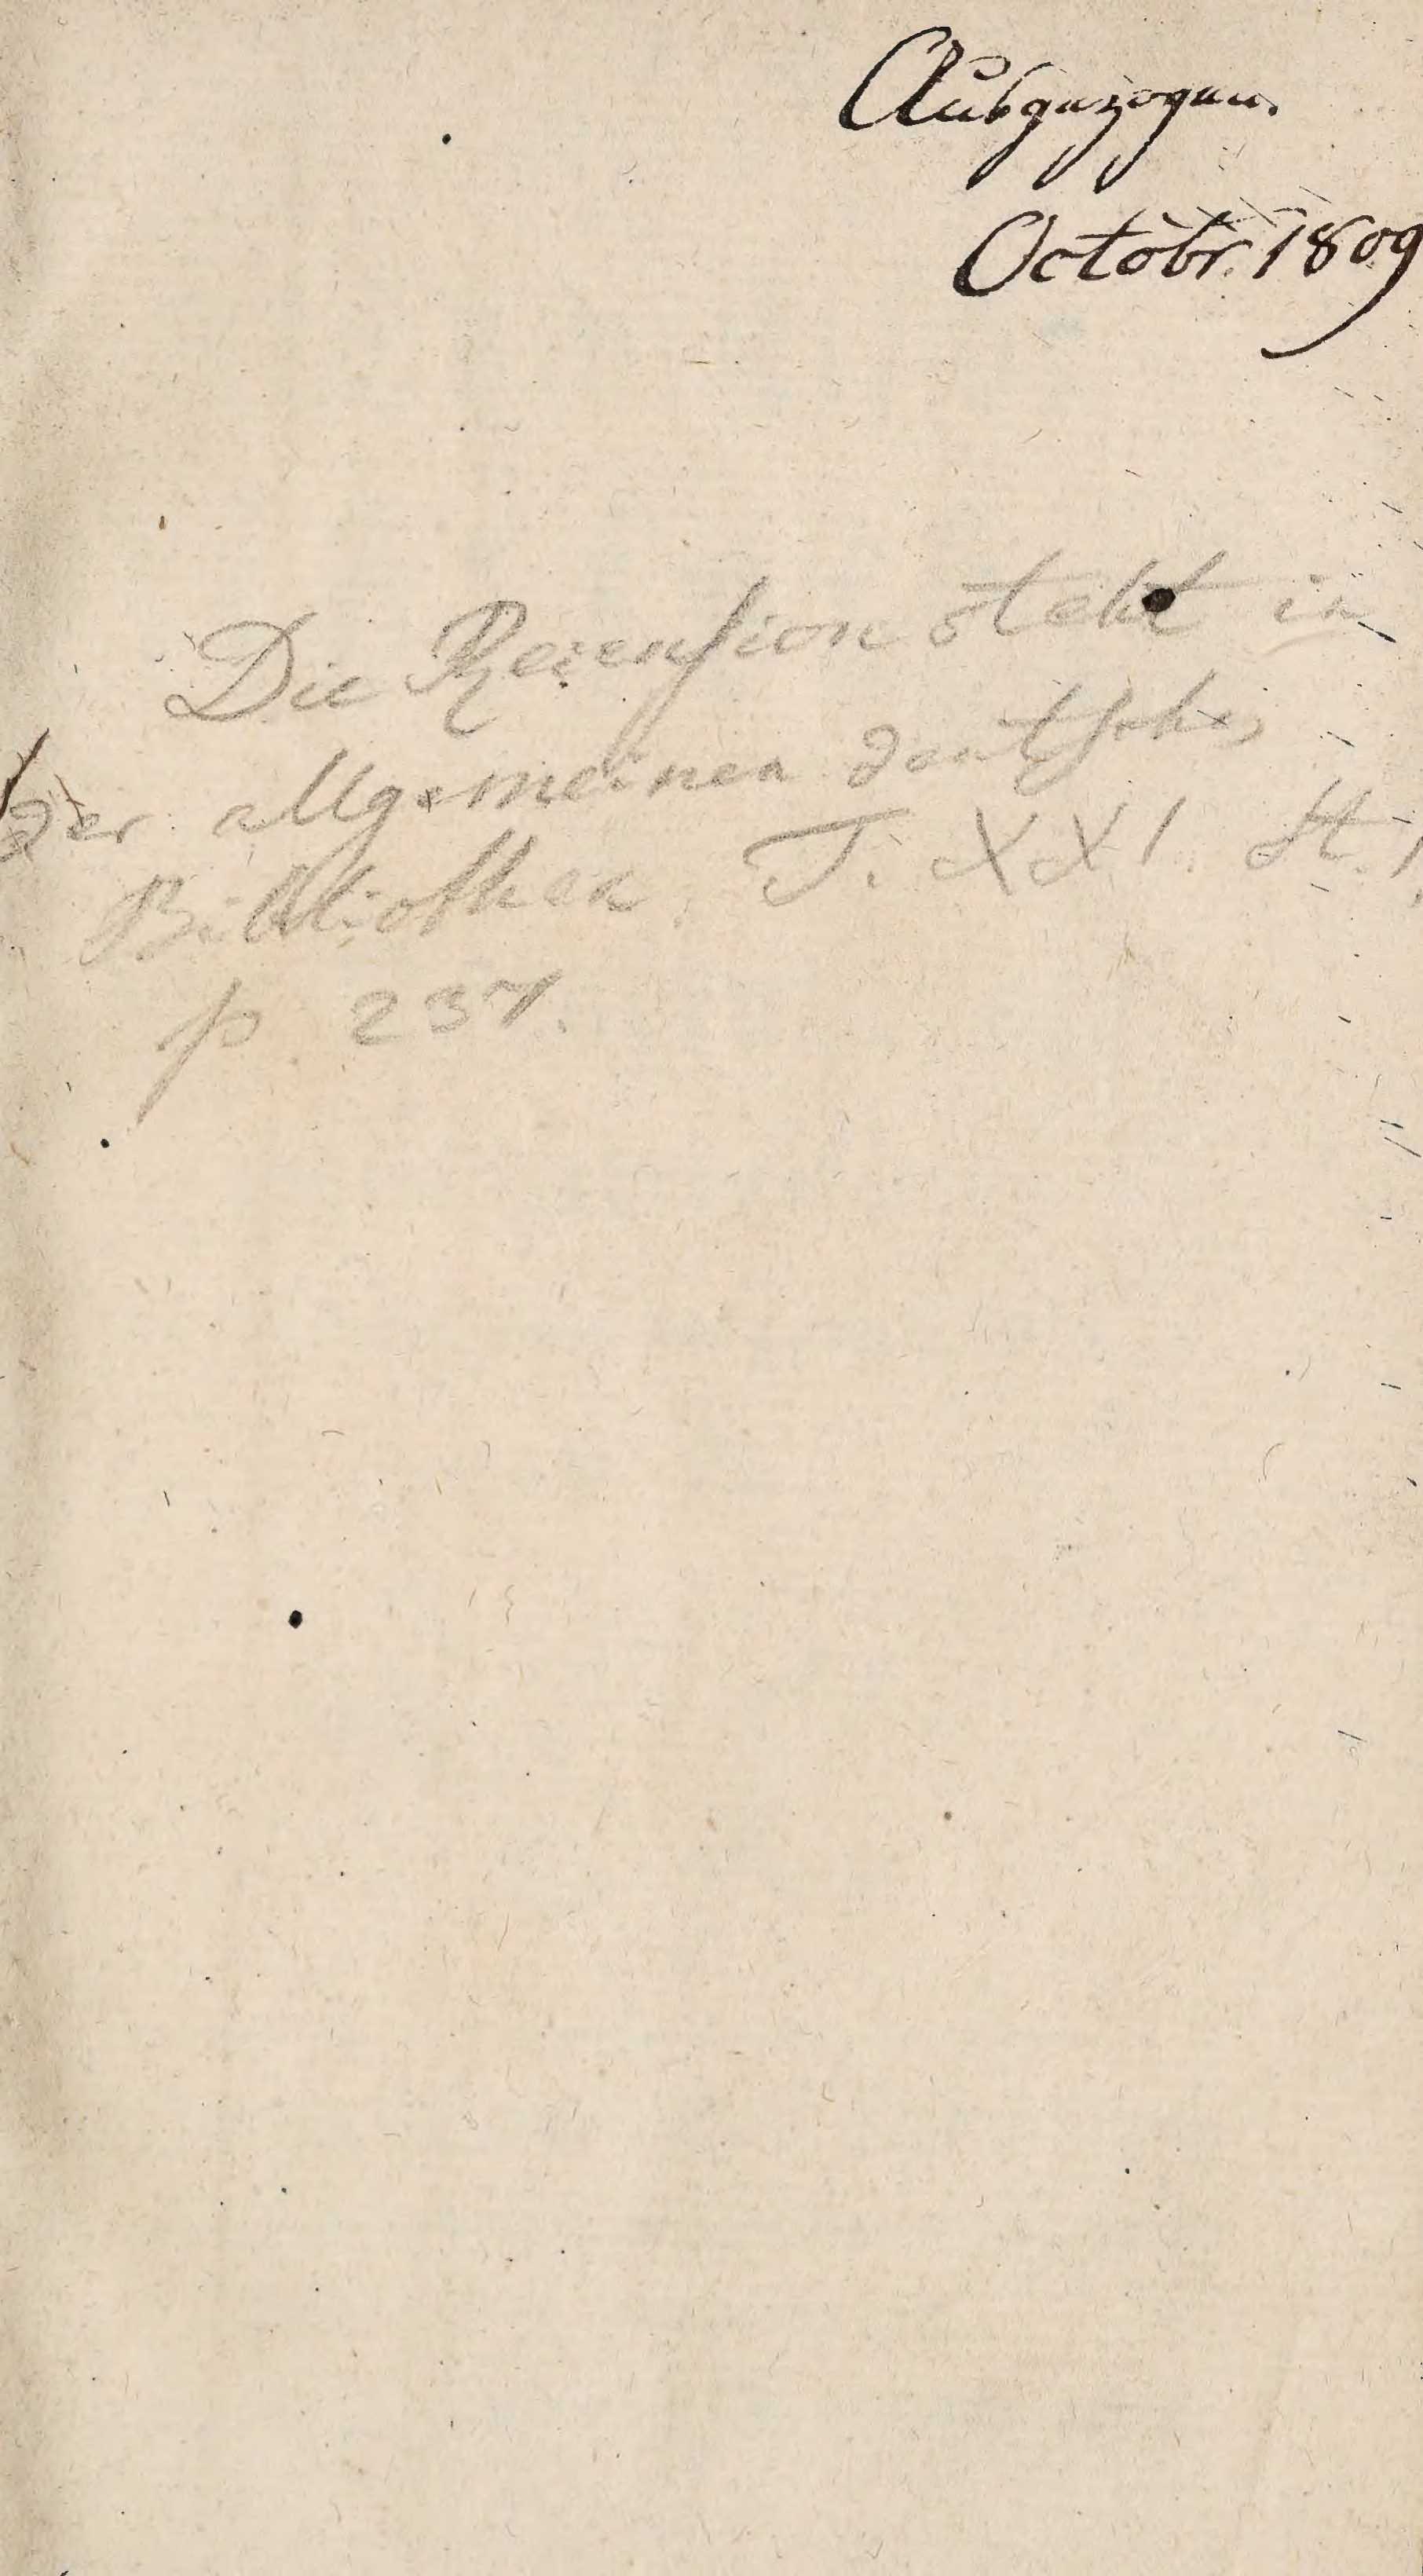 Ausgezogen.
Octobr. 1809
Die Rezension steht in
der allgemeinen deutschen
Bibliothek. T. XXI. St. 1.
p 237.